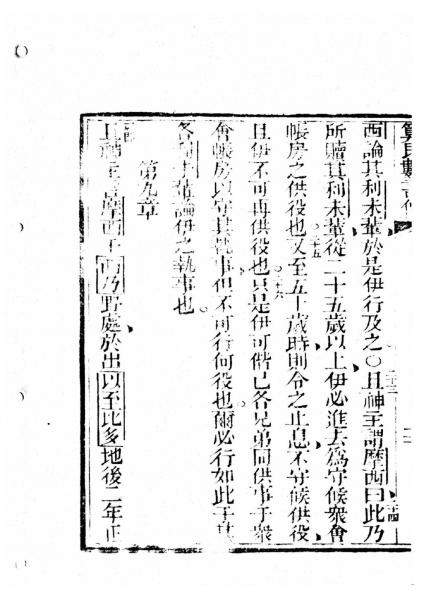 西論其利未輩於是伊行及之○且神主謂摩西曰此乃
所屬其利未輩從二十五歲以上伊必進去為守候眾會
帳房之供役也二十五又至五十歲時則令之止息不守候供役
且伊不可再供役也二十六只是伊可偕已各兄弟同供事于眾
會帳房以守其執事但不可行何役也爾必行如此于其
各利未輩論伊之執事也
第九章
且神主言摩西于西乃野處於出以至比多地後二年正